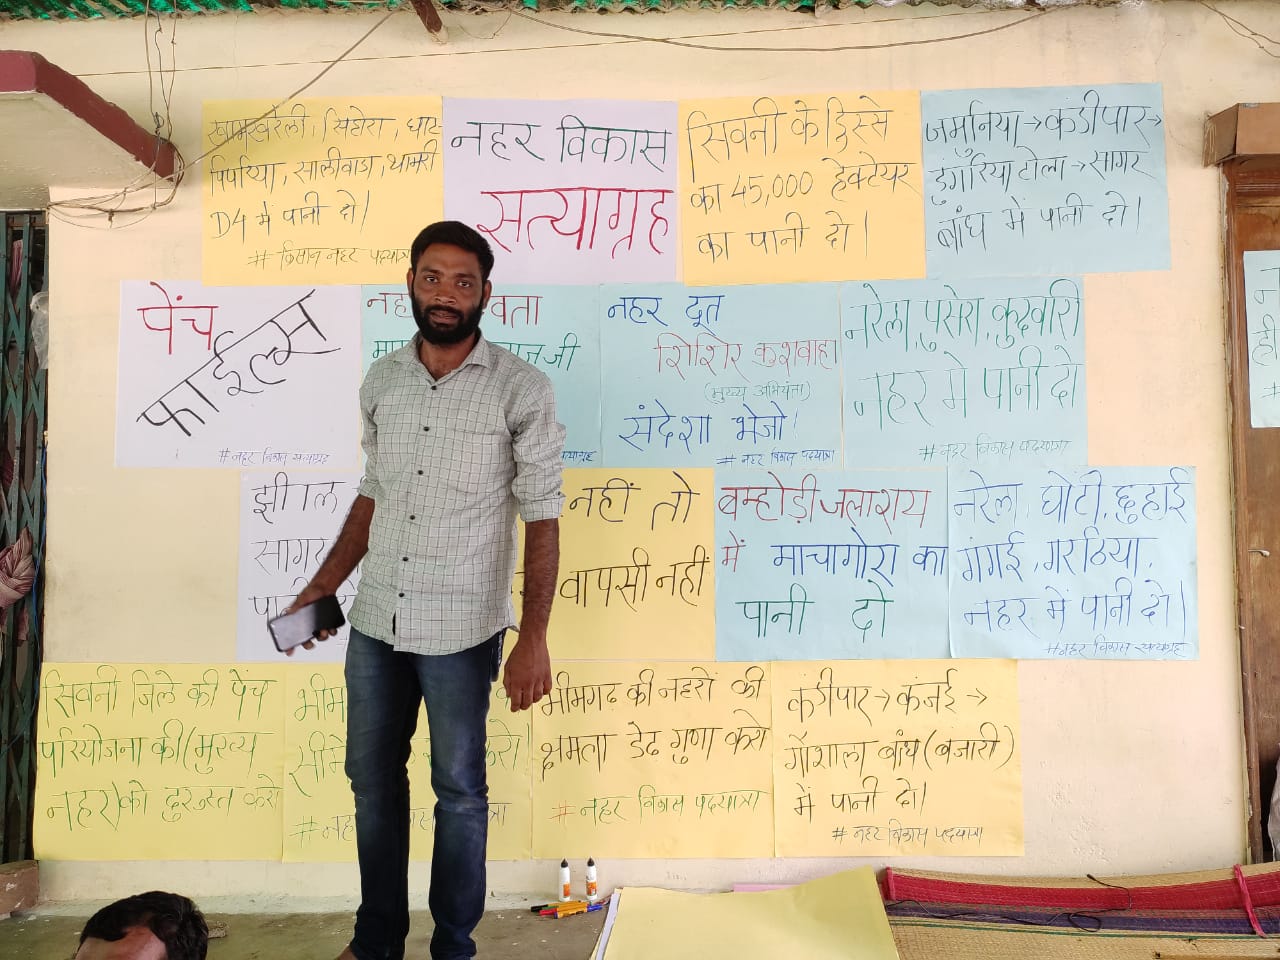 खामखरेली, सिहोरा, घाट-
पिपरिया, सालीवाडा, थामरी
D4 में पानी दो।
# किसान नहर पदयात्रा
नहर विकास
सत्याग्रह
सिवनी के हिस्से
का 45,000 हेक्टेयर
का पानी दो।
जमुनिया → कंडीपार →
डुंगरिया टोला → सागर
बांध में पानी दो।
पेंच
फाईल्स
# नहर विकास सत्याग्रह
नहर दूत
शिशिर कुशवाहा
(मुख्य अभियंता)
संदेशा भेजो।
# नहर विकास पदयात्रा
नरेला, पुसेरा, कुदवारी
नहर में पानी दो
# नहर विकास पदयात्रा
झीगल
सागर
नहीं तो
वापसी नहीं
बम्होड़ी जलाशय
में माचागोरा का
पानी दो
नरेला, घोटी, छुहाई
गंगई, गरठिया,
नहर में पानी दो।
# नहर विकास सत्याग्रह
सिवनी जिले की पेंच
परियोजना की (मुख्य
नहर) को दुरुस्त करो
भीमगढ की नहरों की
क्षमता डेढ गुणा करो
# नहर विकास पदयात्रा
कंडीपार → कंजई →
गौशाला बांध (बजारी)
में पानी दो।
# नहर विकास पदयात्रा